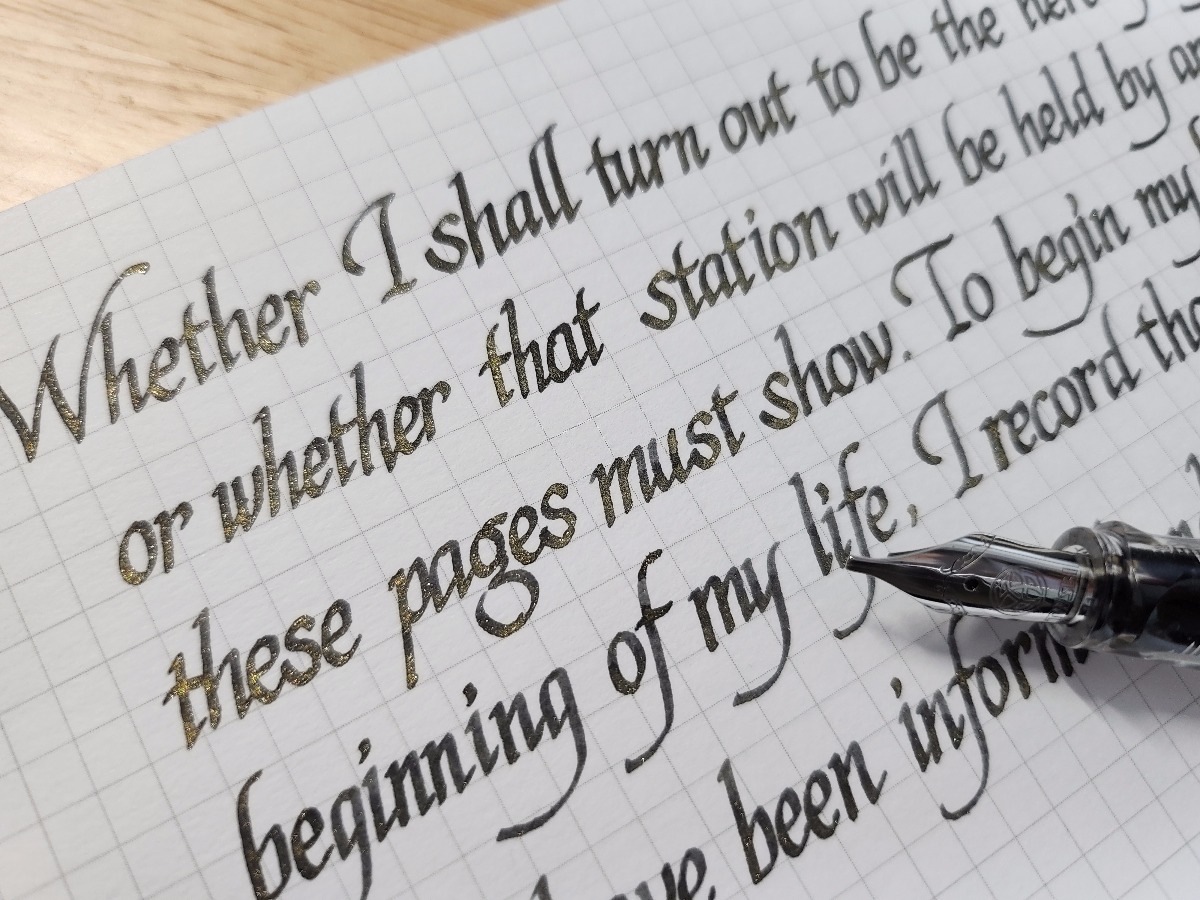 Whether I shall turn out to be the
or whether that station will be held by
these pages must show. To begin my
beginning of my life, I record
been inform